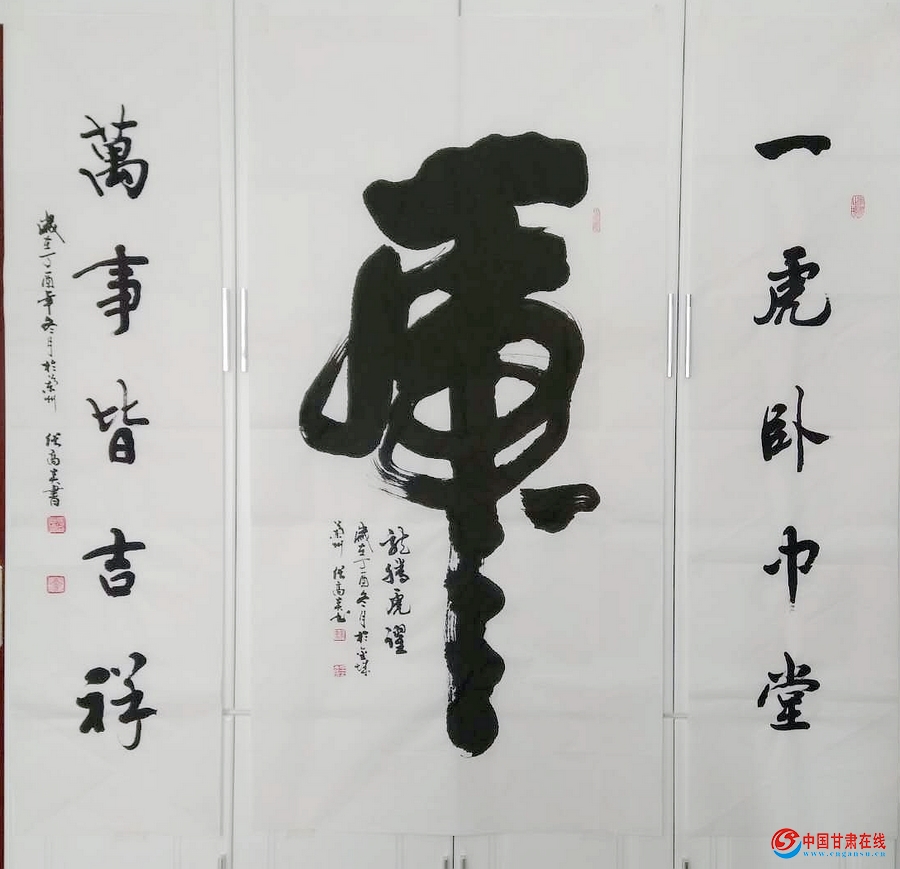 一虎卧巾堂
虎
龍腾虎躍
歲在丁酉冬月於金城
蘭州 張高貴书
萬事皆吉祥
歲在丁酉年冬月於蘭州 張高貴書
中国甘肃在线
www.cngansu.cn